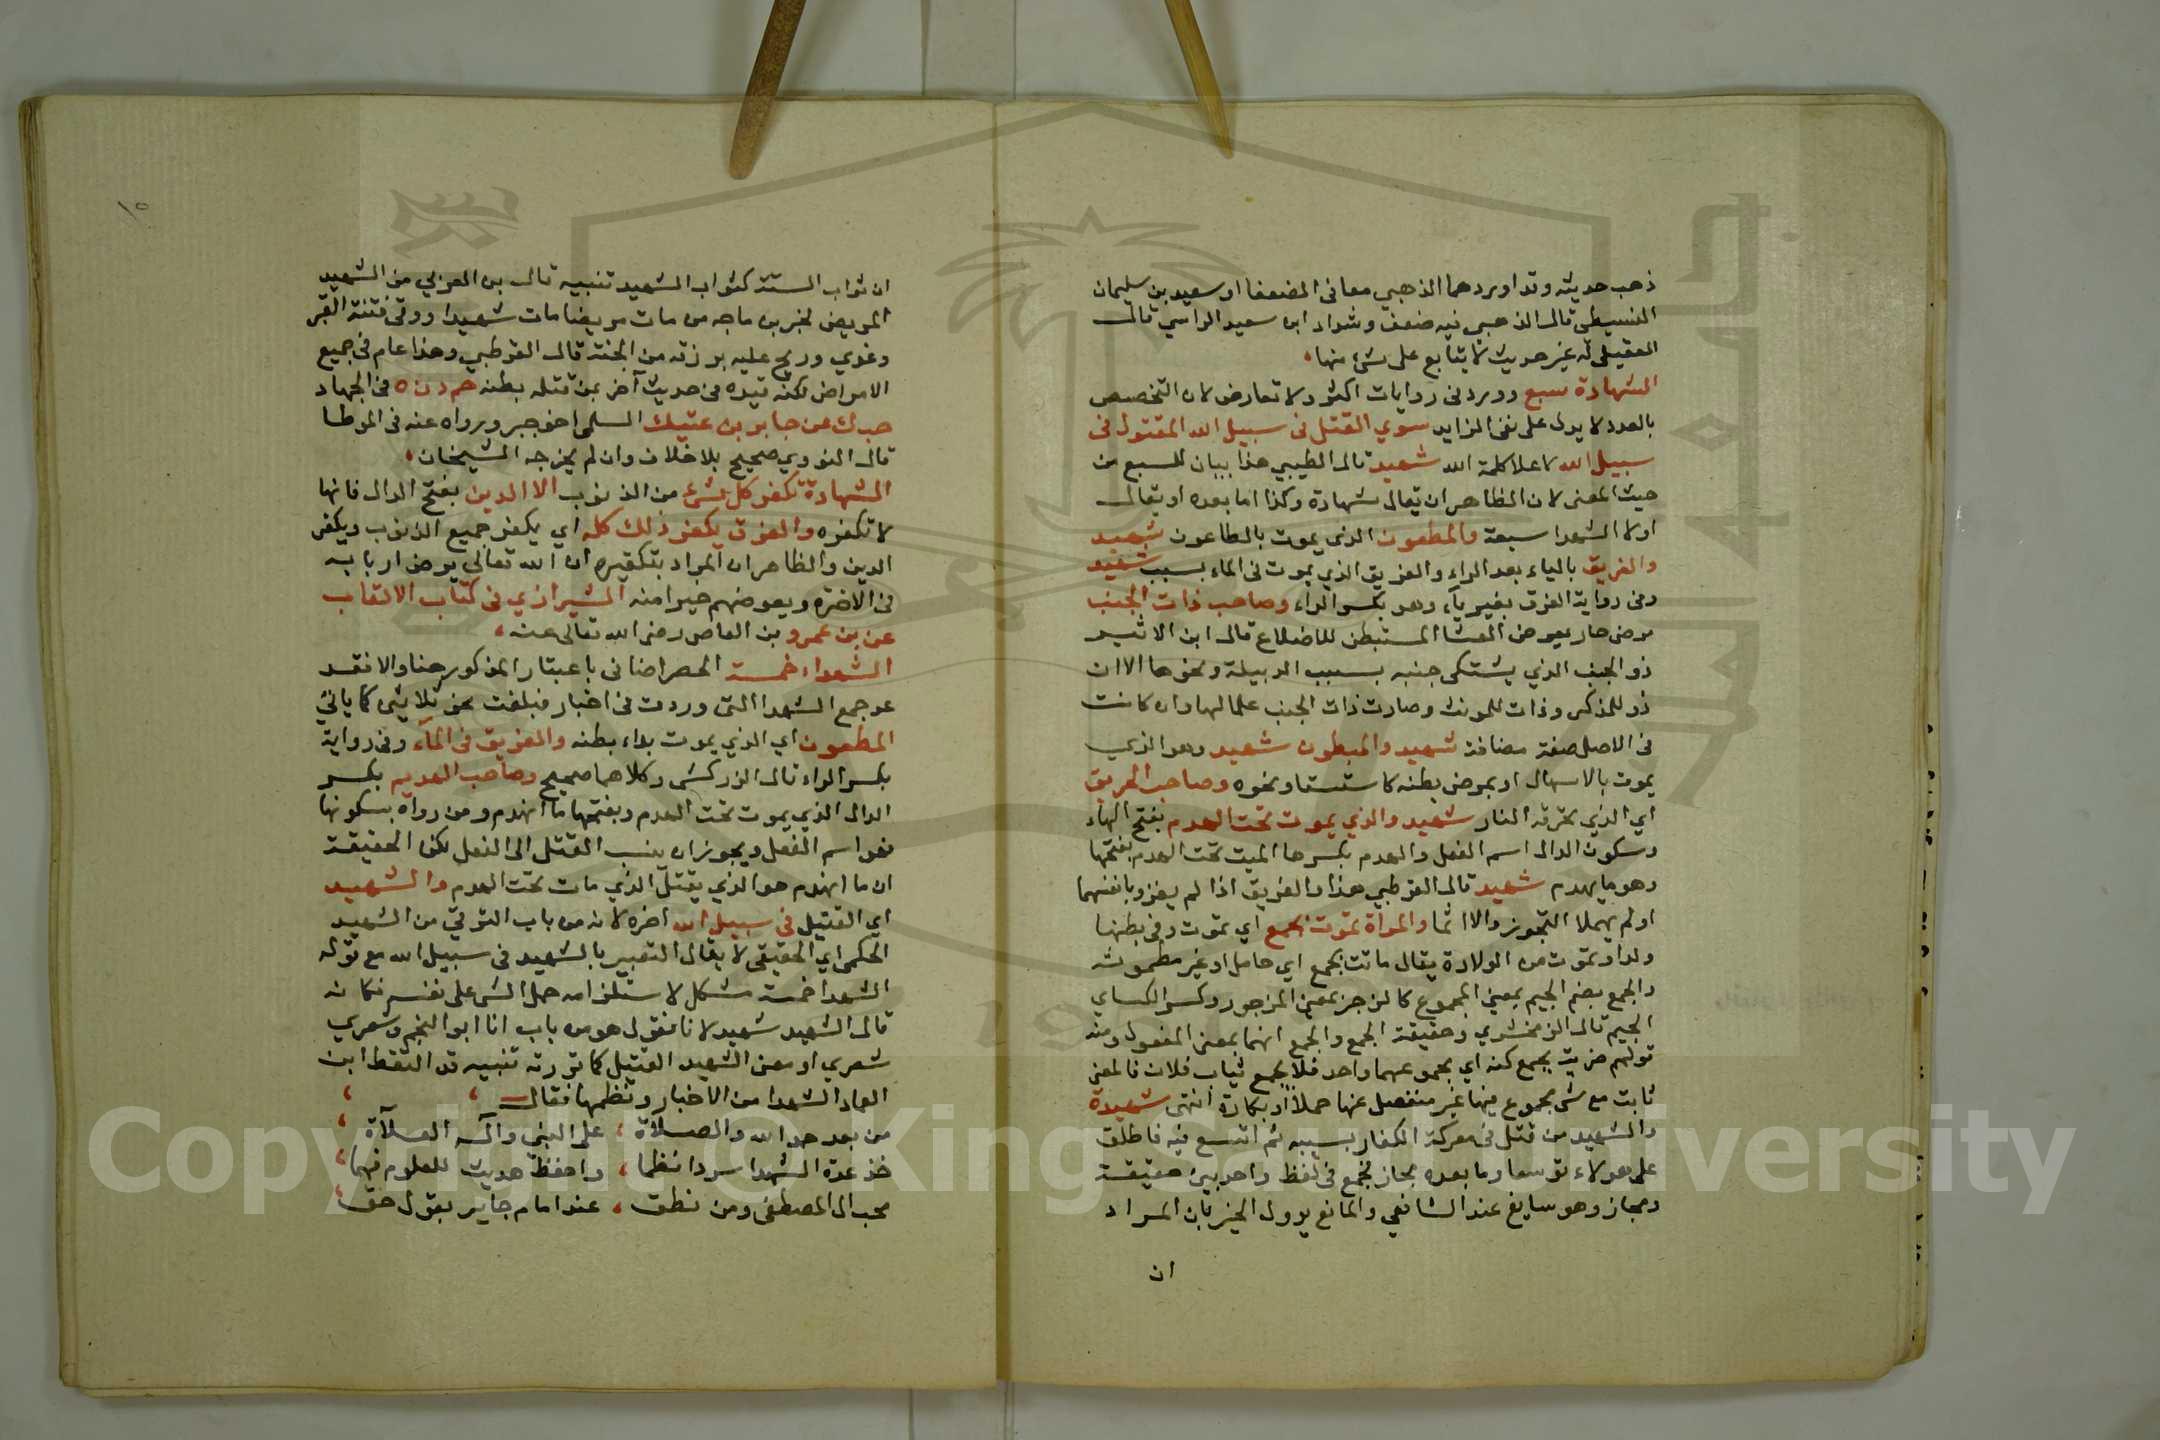 ذهب حديثه وقد اوردهما الذهبي معا في الضعفا او سعيد بن سليمان
النسيطي قال الذهبي فيه ضعف وشداد ابن سعيد الراسي قال
العقيلي له غير حديث لا يتابع على شئ منها
الشهادة سبع وورد في روايات اكثر ولا تعارض لان التخصيص
بالعدد لا يدل على نفي الزايد سوي القتل في سبيل الله المقتول في
سبيل الله لاعلا كلمة الله شهيد قال الطيبي هذا بيان للسبع من
حيث المعنى لان الظاهر ان يقال شهادة وكذا اما بعده او يقال
اولا الشهدا سبعة والمطعون الذي يموت بالطاعون شهيد
والغريق بالياء بعد الراء والغريق الذي يموت في الماء بسبب شهيد
وفي رواية الغرق بغير ياء وهو بكسر الراء وصاحب ذات الجنب
مرض حار يعرض الغشا المستبطن للاضلاع قال ابن الاثير
ذو الجنب الذي يشتكى جنبه بسبب الدبيلة ونحوها الا ان
ذو للمذكر وذات للمونث وصارت ذات الجنب علما لها وان كانت
في الاصل صفة مضافة شهيد والمبطون شهيد وهو الذي
يموت بالاسهال او بمرض بطنه كاستسقا ونحوه وصاحب الحريق
اي الذي تحرقه النار شهيد والذي يموت تحت الهدم بفتح الهاء
وسكون الدال اسم الفعل والهدم بكسرها الميت تحت الهدم بفتحها
وهو ما يهدم شهيد قال القرطبي هذا والغريق اذا لم يغزو بانفسهما
اولم يهملا التحوز والا اثما والمراة تموت بجمع اي تموت وفي بطنها
ولد او تموت من الولادة يقال ماتت بجمع اي حامل او غير مطموثه
والجمع بضم الجيم بمعنى المجموع كالزجز بمعنى المزجور وكسر الكساي
الجيم قال الزمخشري وحقيقة الجمع والجمع انهما بمعنى المفعول ومنه
قولهم ضربت بجمع كفه اي بمجموعهما واحد فلا بجمع ثياب فلان فالمعنى
ثابت مع شئ مجموع فيها غير منفصل عنها حملا او بكارة انتهى شهيدة
والشهيد من قتل في معركة الكفار بسببه ثم اتسع فيه فاطلق
على هولاء توسعا وما بعده مجاز فجمع في لفظ واحد بين حقيقة
ومجاز وهو سايغ عند الشافعي والمانع يوول الخبر بان المراد
ان
١٥
ان ثواب الستة كثواب الشهيد تنبيه قال بن العربي من الشهيد
المريض لخبر بن ماجه من مات مريضا مات شهيدا ووقي فتنة القبر
وغدي وريح عليه برزقه من الجنة قال القرطبي وهذا عام في جميع
الامراض لكنه قيده في حديث آخر بمن قتله بطنه حم د ن ه في الجهاد
حب ك عن جابر بن عتيك السلمى اخو جبر ورواه عنه في الموطا
قال النووي صحيح بلا خلاف وان لم يخرجه الشيخان
الشهادة تكفر كل شئ من الذنوب الا الدين بفتح الدال فانها
لا تكفره والغرق يكفر ذلك كله اي يكفر جميع الذنوب ويكفر
الدين والظاهر ان المراد بتكفيره ان الله تعالى يرضى اربابه
في الاخرة ويعوضهم خيرا منه الشيرازي في كتاب الالقاب
عن بن عمرو بن العاص رضي الله تعالى عنه
الشهداء خمسة الحصر اضافي باعتبار المذكور هنا والا فقد
عد جمع الشهدا التي وردت في اخبار فبلغت نحو ثلاثين كما ياتي
المطعون اي الذي يموت بداء بطنه والغريق في الماء وفي رواية
بكسر الراء قال الزركشي وكلاهما صحيح وصاحب الهديم بكسر
الدال الذي يموت تحت الهدم وبفتحها ما انهدم ومن رواه بسكونها
فهو اسم الفعل ويجوز ان ينسب القتل الى الفعل لكن الحقيقة
ان ما انهدم هو الذي يقتل الذي مات تحت الهدم والشهيد
اي القتيل في سبيل الله اخره لانه من باب الترقي من الشهيد
الحكمي اي الحقيقي لا يقال التعبير بالشهيد في سبيل الله مع قوله
الشهدا خمسة مشكل لاستلزامه حمل الشئ على نفسه فكانه
قال الشهيد شهيد لانا نقول هو من باب انا ابو النجم وشعري
شعري او معنى الشهيد القتيل كما تورته تنبيه قد التقط ابن
العماد الشهدا من الاخبار ونظمها فقال
من بعد حمد الله والصلاة ، على النبي وآله الصلاة
خذ عدة الشهدا سردا نظما ، واحفظ هديت للعلوم فهما
محب ال المصطفى ومن نطق ، عند امام جاير بقول حق
Copyright © King Saud University